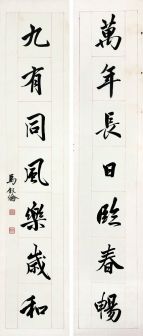 萬年長日臨春暢
九有同風樂歲和
馬敘倫